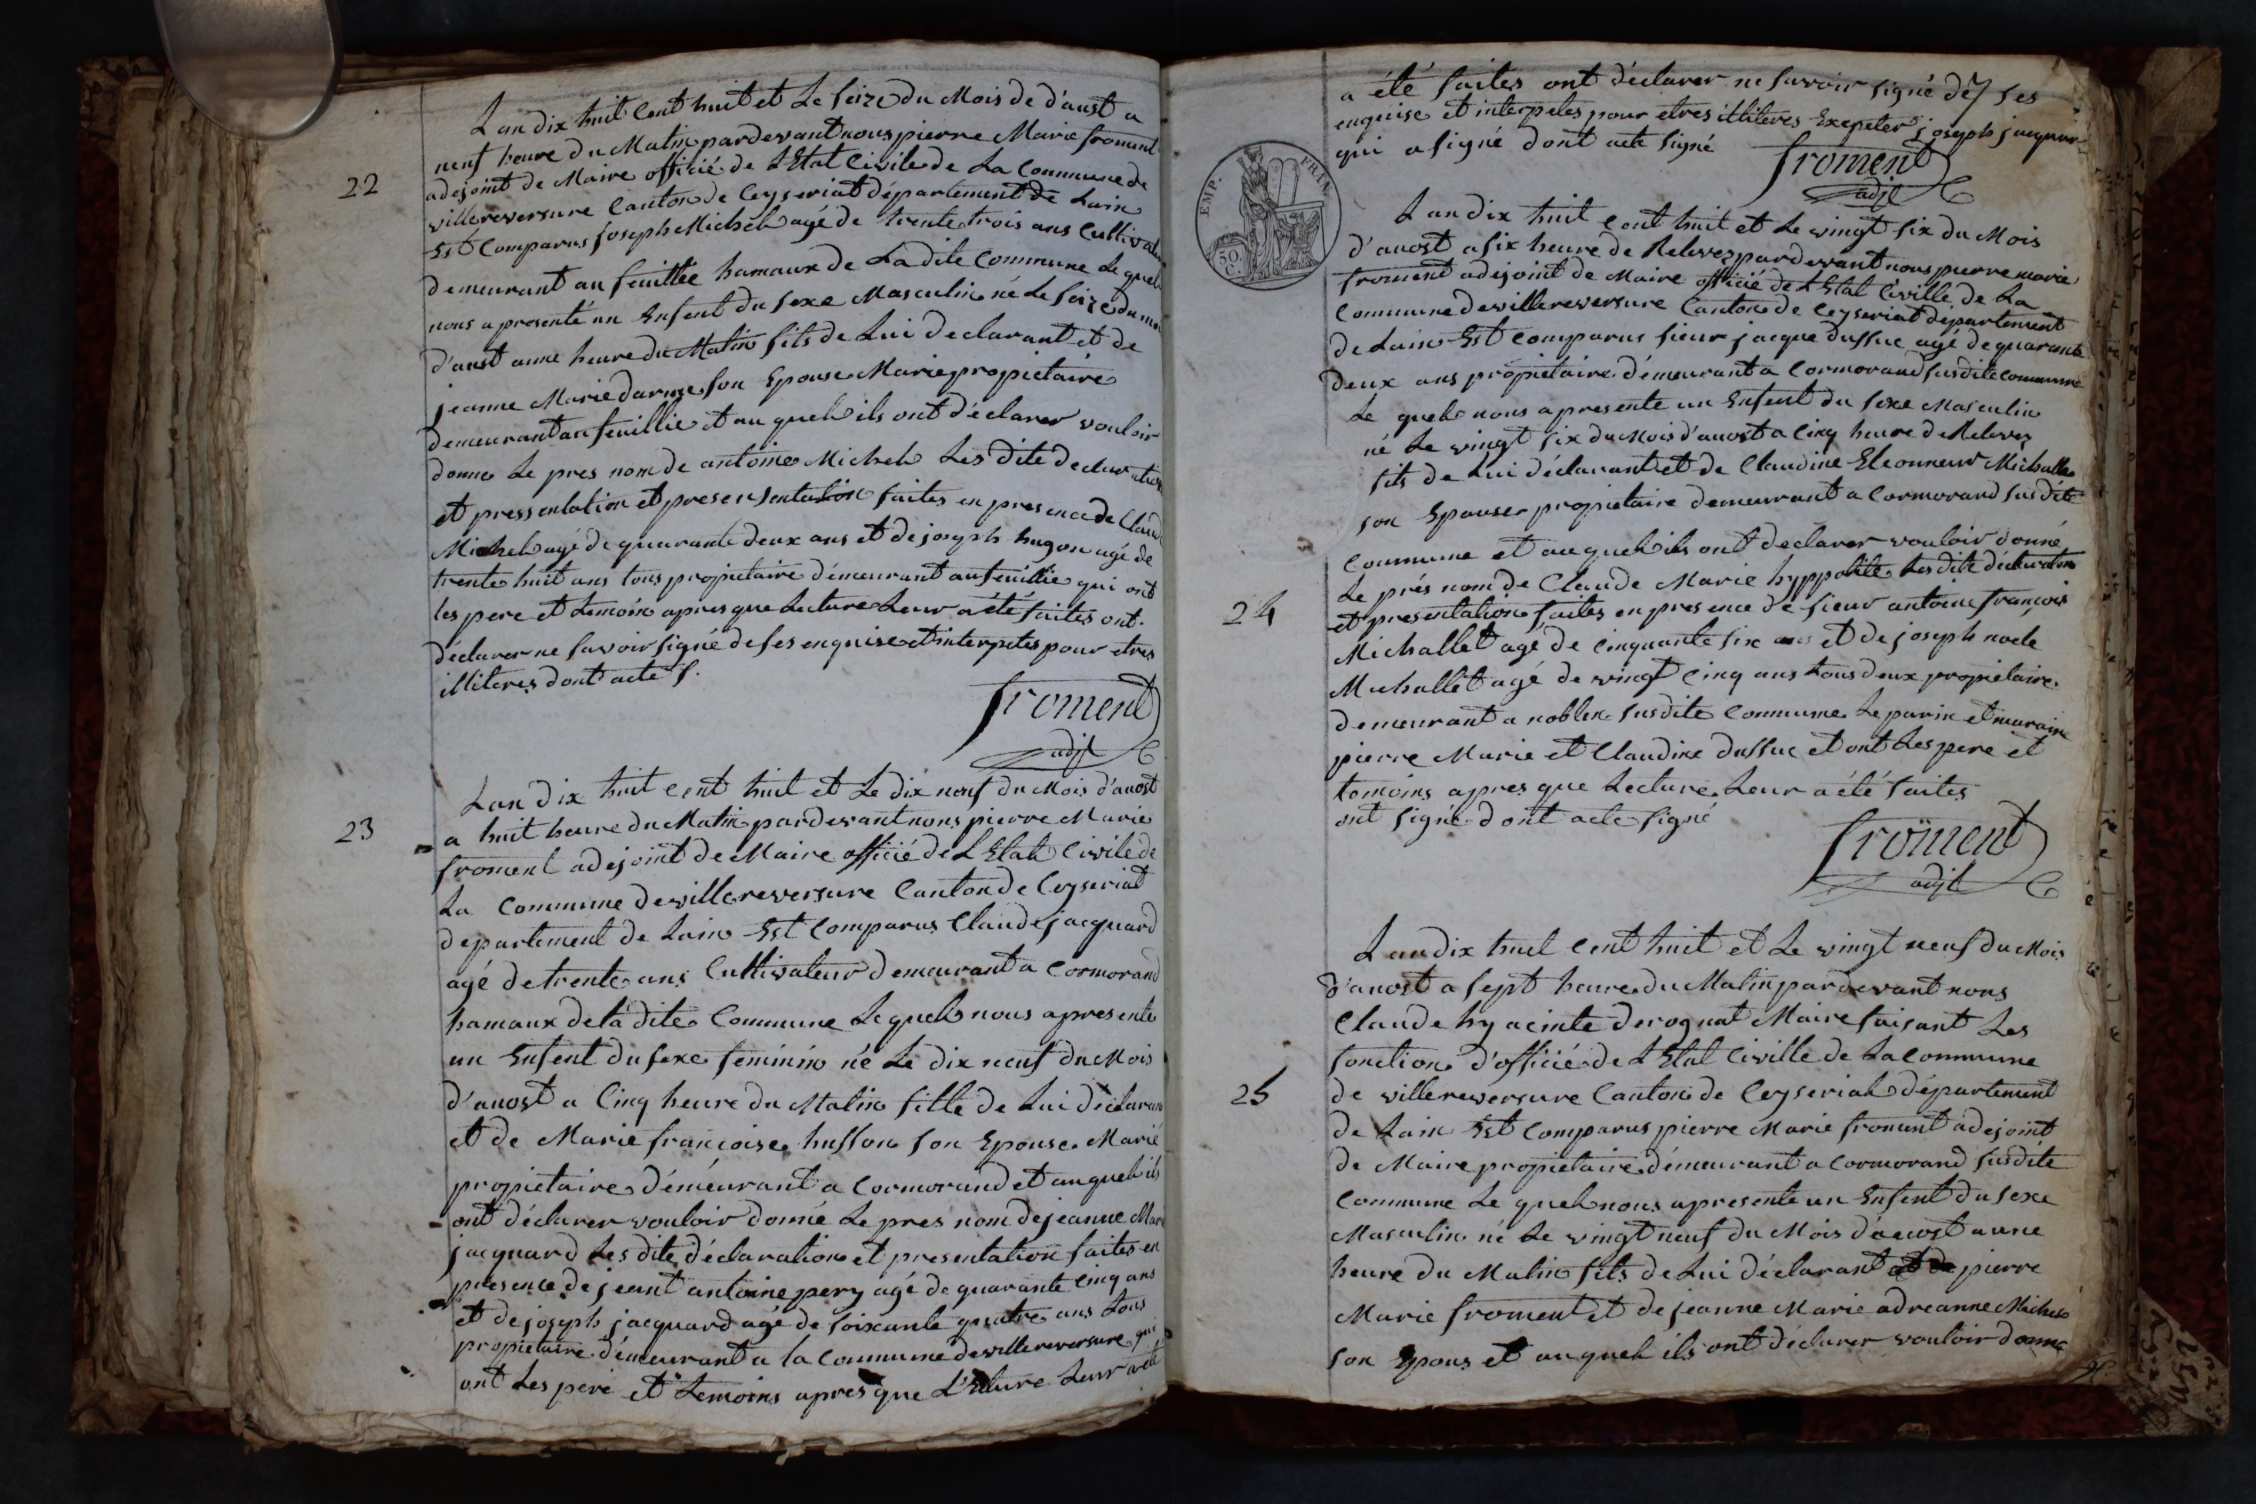 22
Lan dix huit Cent huit et Le seize du Mois de d'aust a
neuf heure du Matin pardevant nous pierre Marie froment
adejoint de Maire officié de L'Etat Civile de La Commune de
villereversure Canton de Ceyseriat département de Lain
Est Comparus joseph Michel agé de trente trois ans Cultivateur
demeurant au feuillée hamaux de La dite Commune Le quel
nous a presenté un Enfent du sexe Masculin né Le seize du moi
d'aust aune heure du Matin fils de Lui declarant et de
jeanne Marie darme son Epouse Marie propietaire
demeurant au feuillie et au quel ils ont déclarer vouloir
donne Le pres nom de antoine Michel Les dite declaration
et pressentation et presensentation faites en presence de Claud
Michel agé de quarante deux ans et de joseph hugon agé de
trente huit ans tous propietaire démeurant au feuillie qui ont
les pere et temoin apres que Lecture Leur a été faites ont
déclarer ne savoir signé de ses enquise et interpeles pour etres
illiteres dont acte s.
froment
adjt
23
Lan dix huit cent huit et Le dix neuf du Mois d'auost
a huit heure du Matin pardevant nous pierre Marie
froment adejoint de Maire officié de L Etat Civile de
La Commune de villereversure Canton de Ceyseriat
departement de Lain Est Comparus Claude jacquard
agé de trente ans Cultivateur demeurant a Cormorand
hamaux de la dite Commune Le quel nous a presente
un Enfent du sexe feminin né Le dix neuf du Mois
d'auost a Cinq heure du Matin fille de Lui declarant
et de Marie francoise husson son Epouse Marié
propietaire démeurant a Cormorand et au quel ils
ont déclarer vouloir donné Le pres nom de jeanne Mari
jacquard Les dite déclaration et presentation faites en
presence de jeant antoine pery agé de quarante Cinq ans
et de joseph jacquard agé de soixante quatre ans Tous
propietaire démeurant a la Commune de villereversure qui
ont Les pere et Temoins apres que L'Ecture Leur a été
a été faites ont déclarer ne savoir signé de ses
enquise et interpeles pour etres illiteres Exepeter joseph jacquar
qui a signé dont acte signé
froment
adjt
EMP. FRAN.
50 C.
24
Lan dix huit Cent huit et Le vingt six du Mois
d'auost a six heure de Relevez pardevant nous pierre marie
froment adejoint de Maire officié de L Etat Civille de La
Commune de villereversure Canton de Ceyseriat département
de Lain Est Comparus sieur jacque dussuc agé de quarante
deux ans propietaire démeurant a Cormorand susdite commune
Le quel nous a presente un Enfent du sexe Masculin
né Le vingt six du Mois d'auost a Cinq heure de Relevez
fils de Lui déclarant et de Claudine Eleonneur Michalle
son Epouse propietaire demeurant a Cormorand susdite
Commune et au quel ils ont declarer vouloir donné
Le prés nom de Claude Marie hyppolite Les dite déclaration
et presentation faites en presence de sieur antoine francois
Michallet agé de Cinquante six ans et de joseph noele
Michallet agé de vingt Cinq ans Tous deux propietaire
demeurant a noblen susdite Commune Le parin et maraine
pierre Marie et Claudine dussuc et ont Les pere et
temoins apres que Lecture Leur a été faites
ont signé dont acte signé
froment
adjt
25
Lan dix huit Cent huit et Le vingt neuf du Mois
d'auost a sept heure du Matin pardevant nous
Claude hyacinte derognat Maire faisant Les
fonction d'officié de L Etat Civille de La commune
de villereversure Canton de Ceyseriat département
de Lain Est Comparus pierre Marie froment adejoint
de Maire propietaire démeurant a Cormorand susdite
Commune Le quel nous a presente un Enfent du sexe
Masculin né Le vingt neuf du Mois d'auost a une
heure du Matin fils de Lui déclarant et de pierre
Marie froment et de jeanne Marie adreanne Michel
son Epous et au quel ils ont déclarer vouloir donne